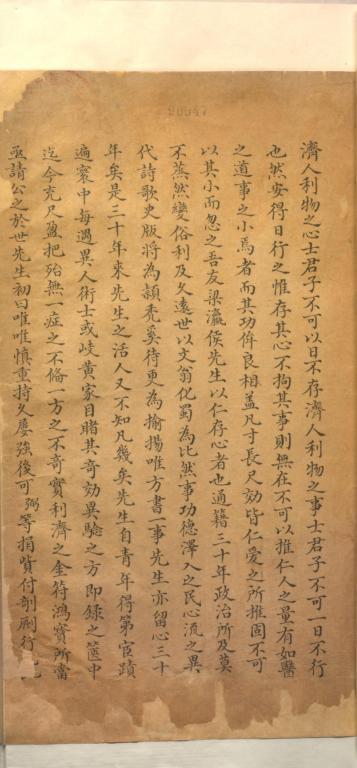 濟人利物之心士君子不可以日不存濟人利物之事士君子不可一日不行
也然安得日行之惟存其心不拘其事則無在不可以推仁人之量有如醫
之道事之小焉者而其功侔良相蓋凡寸長尺効皆仁愛之所推固不可
以其小而忽之吾友梁瀛侯先生以仁存心者也通籍三十年政治所及莫
不蒸然變俗利及久遠世以文翁化蜀為比然事功德澤入之民心流之異
代詩歌史版將為頴禿奚待更為揄揚唯方書一事先生亦留心三十
年矣是三十年來先生之活人又不知凡幾矣先生自青年得第宦蹟
遍寰中每遇異人術士或岐黃家目睹其奇効異驗之方即錄之篋中
迄今充尺盈把殆無一症之不俻一方之不奇實利濟之金符鴻寶所當
亟請公之於世先生初曰唯唯慎重持久屢強後可弼等捐貲付剞劂行